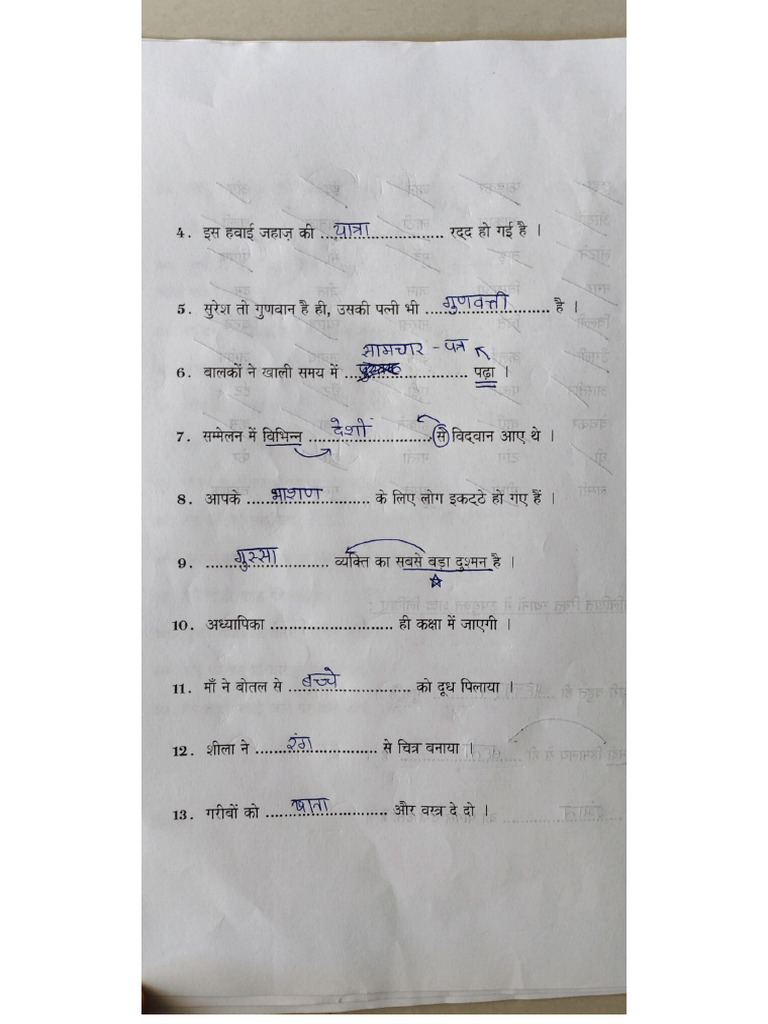 4. इस हवाई जहाज़ की ...यात्रा... रद्द हो गई है ।
5. सुरेश तो गुणवान है ही, उसकी पत्नी भी ...गुणवत्ती... है ।
सामचार - पत्र
6. बालकों ने खाली समय में ...... पढ़ा ।
7. सम्मेलन में विभिन्न ...देशों... से विद्वान आए थे ।
8. आपके ...भाशण... के लिए लोग इकट्ठे हो गए हैं ।
9. ...गुस्सा... व्यक्ति का सबसे बड़ा दुश्मन है ।
10. अध्यापिका ...... ही कक्षा में जाएगी ।
11. माँ ने बोतल से ...बच्चे... को दूध पिलाया ।
12. शीला ने ...रंग... से चित्र बनाया ।
13. गरीबों को ...खाता... और वस्त्र दे दो ।